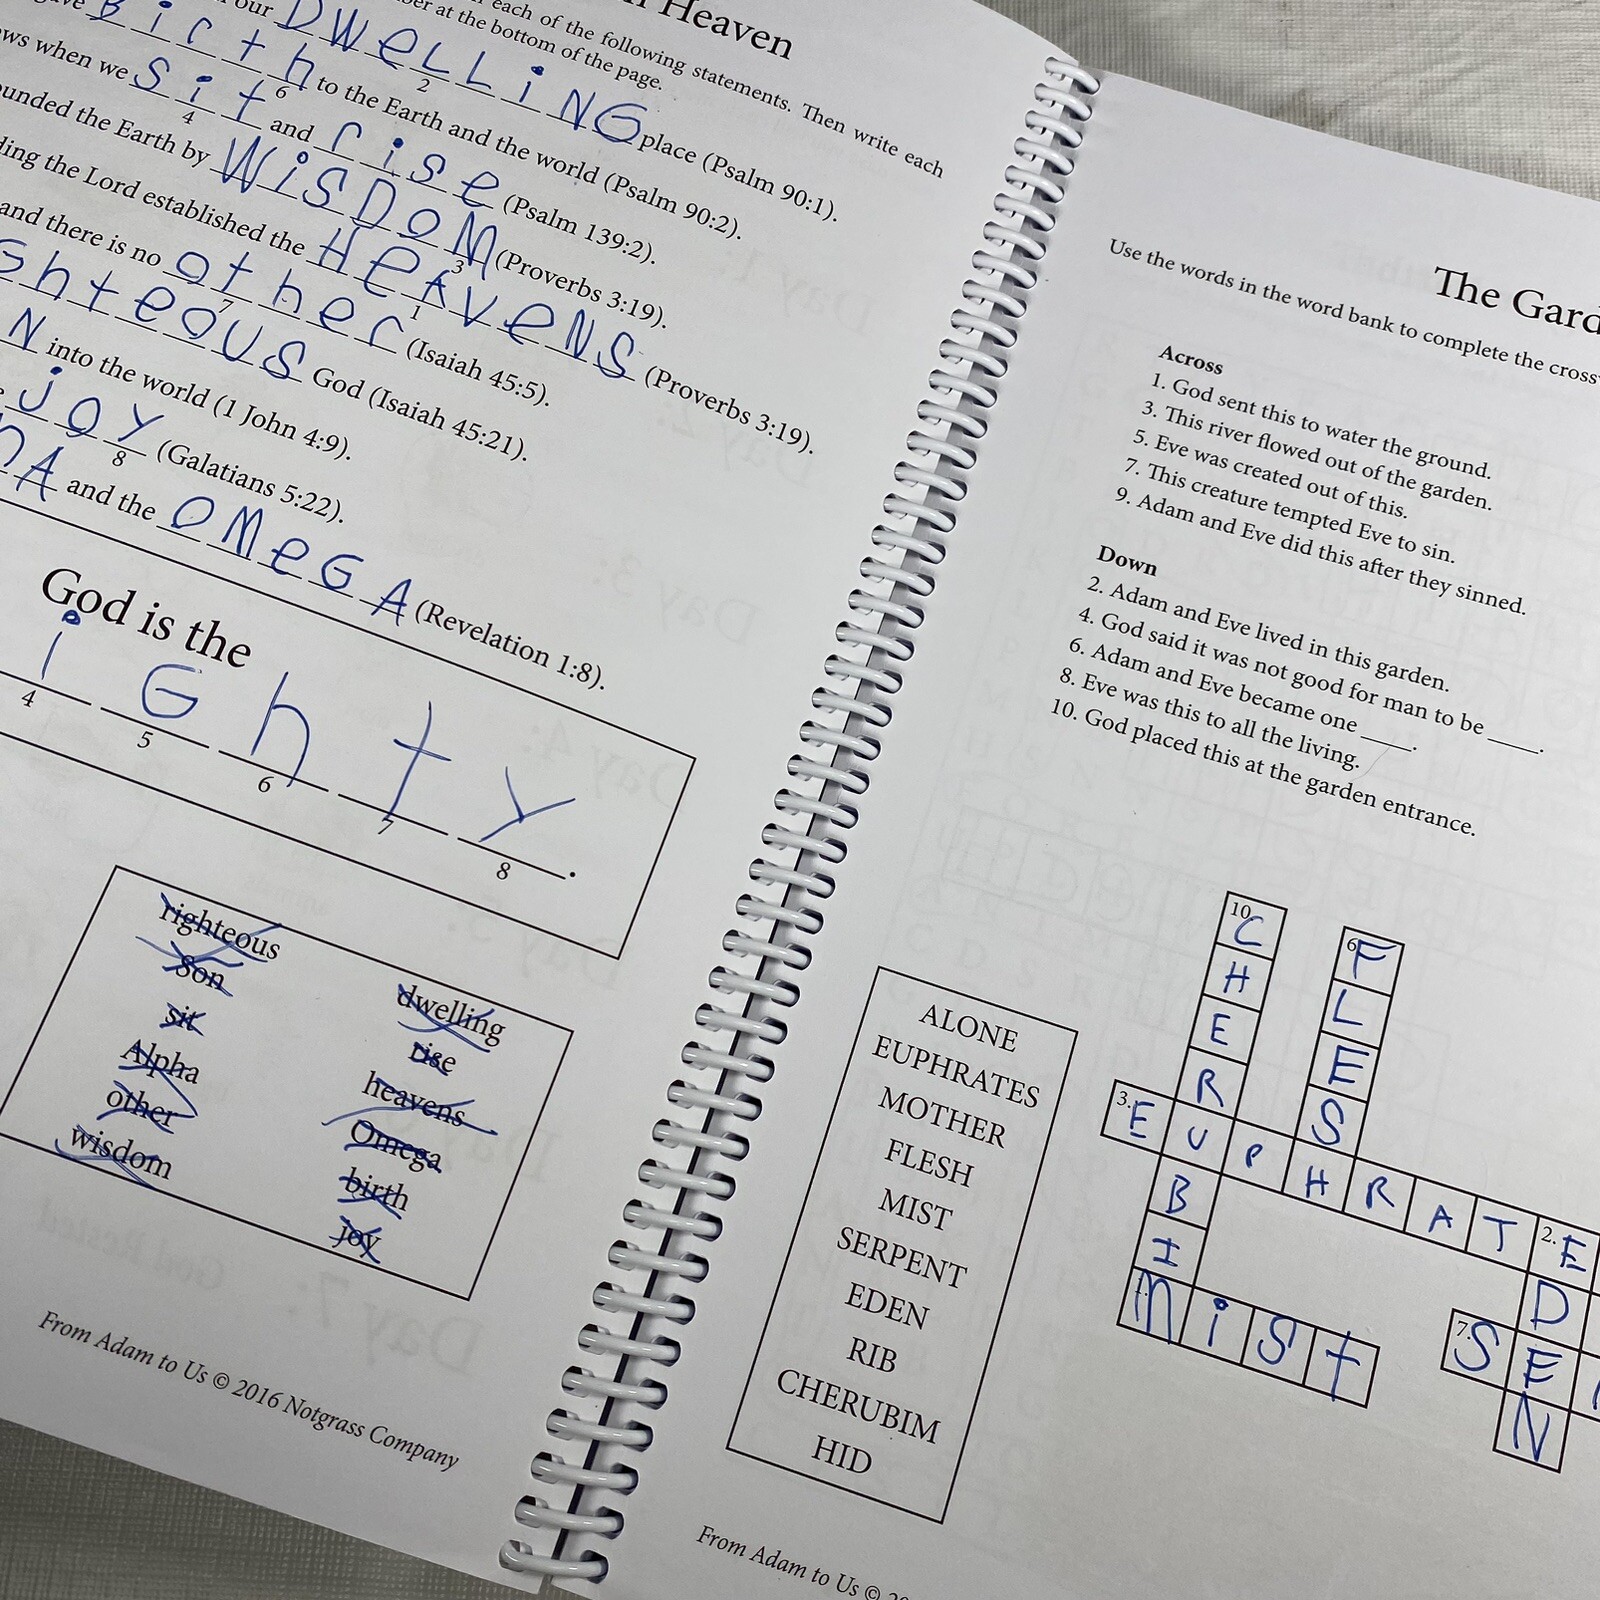 n Heaven
each of the following statements. Then write each
ber at the bottom of the page.
our DWeLLiNG place (Psalm 90:1).
Birth to the Earth and the world (Psalm 90:2).
2
6
ows when we sit and rise (Psalm 139:2).
4
ounded the Earth by WiSDoM (Proverbs 3:19).
3
ding the Lord established the HeAVeNS (Proverbs 3:19).
1
and there is no other (Isaiah 45:5).
7
ghteous God (Isaiah 45:21).
N into the world (1 John 4:9).
joy (Galatians 5:22).
8
hA and the OMeGA (Revelation 1:8).
God is the
i G h t y
4 5 6 7 8 .
righteous
Son
sit
Alpha
other
wisdom
dwelling
rise
heavens
Omega
birth
joy
From Adam to Us © 2016 Notgrass Company
The Gard
Use the words in the word bank to complete the cross
Across
1. God sent this to water the ground.
3. This river flowed out of the garden.
5. Eve was created out of this.
7. This creature tempted Eve to sin.
9. Adam and Eve did this after they sinned.
Down
2. Adam and Eve lived in this garden.
4. God said it was not good for man to be ____.
6. Adam and Eve became one ____.
8. Eve was this to all the living.
10. God placed this at the garden entrance.
ALONE
EUPHRATES
MOTHER
FLESH
MIST
SERPENT
EDEN
RIB
CHERUBIM
HID
10. CHERUBIM
6. FLESH
3. EUPHRATE
2. EDEN
1. Mist
7. SE
From Adam to Us © 20